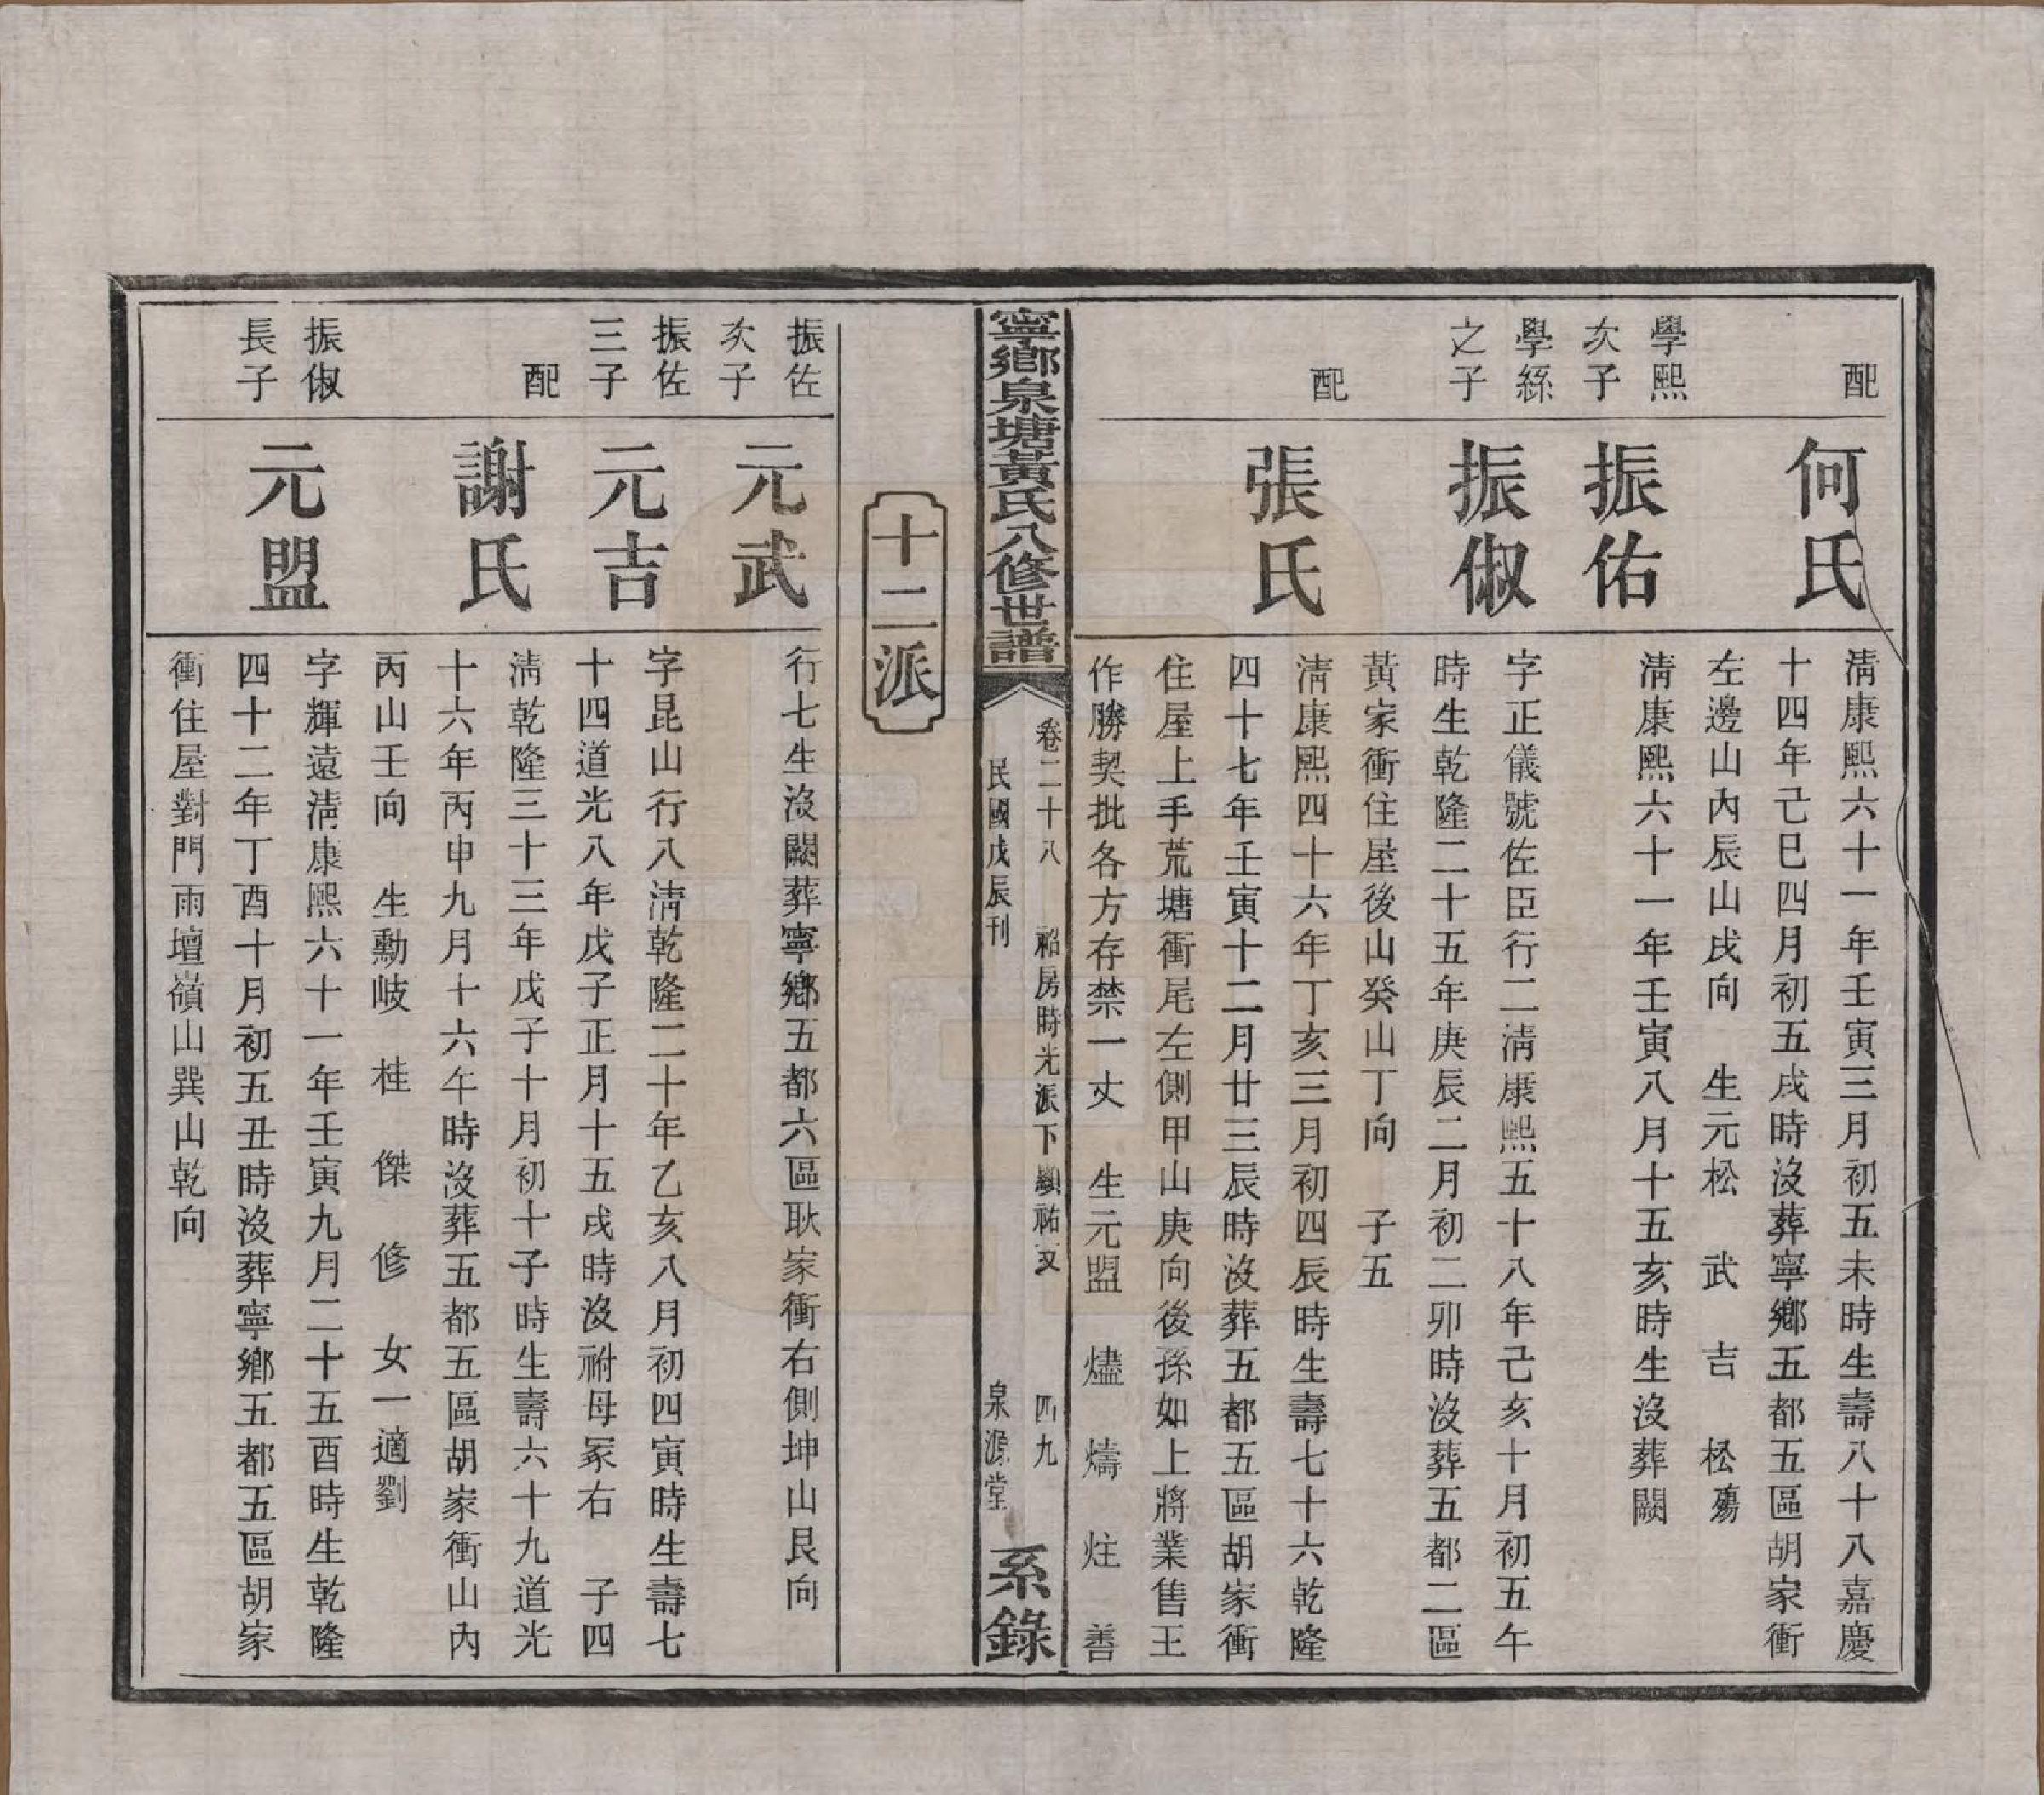 配
何氏
淸康熙六十一年壬寅三月初五未時生壽八十八嘉慶
十四年己巳四月初五戌時沒葬寧鄕五都五區胡家衝
左邊山內辰山戌向 生元松 武 吉 松殤
學熙
次子
振佑
淸康熙六十一年壬寅八月十五亥時生沒葬闕
學繇
之子
振俶
字正儀號佐臣行二淸康熙五十八年己亥十月初五午
時生乾隆二十五年庚辰二月初二卯時沒葬五都二區
黃家衝住屋後山癸山丁向 子五
配
張氏
淸康熙四十六年丁亥三月初四辰時生壽七十六乾隆
四十七年壬寅十二月廿三辰時沒葬五都五區胡家衝
住屋上手荒塘衝尾左側甲山庚向後孫如上將業售王
作勝契批各方存禁一丈 生元盟 燼 燽 炷 善
寧鄕泉塘黃氏八修世譜
卷二十八 祒房時光派下顯祐支 四九
民國戊辰刊 泉源堂
系錄
十二派
振佐
次子
元武
行七生沒闕葬寧鄕五都六區耿家衝右側坤山艮向
振佐
三子
元吉
字昆山行八淸乾隆二十年乙亥八月初四寅時生壽七
十四道光八年戊子正月十五戌時沒祔母冢右 子四
配
謝氏
淸乾隆三十三年戊子十月初十子時生壽六十九道光
十六年丙申九月十六午時沒葬五都五區胡家衝山內
丙山壬向 生勳岐 桂 傑 修 女一適劉
振俶
長子
元盟
字輝遠淸康熙六十一年壬寅九月二十五酉時生乾隆
四十二年丁酉十月初五丑時沒葬寧鄕五都五區胡家
衝住屋對門雨壇嶺山巽山乾向